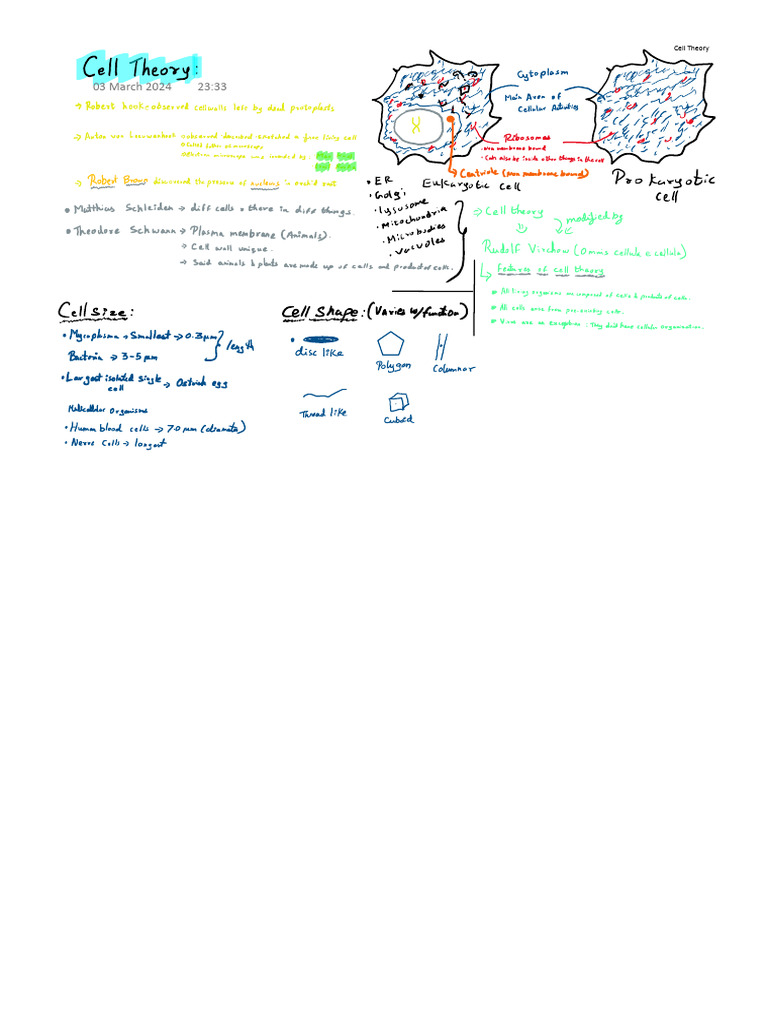 Cell Theory
Cell Theory:
03 March 2024 23:33
→ Robert hooke observed cellwalls left by dead protoplasts
→ Anton van Leeuwenhoek observed described sketched a free living cell
→ Robert Brown discovered the presence of nucleus in
• Matthias Schleiden → diff cells & there in diff things.
• Theodore Schwann → Plasma membrane (Animals).
→ Cell wall unique.
→ Said animals & plants are made up of cells and product of cells.
Cytoplasm
Main Area of
Cellular Activities
Ribosomes
• Non membrane bound
• Can also be inside other things in the cell
Centriole (Non membrane bound)
Eukaryotic cell
Prokaryotic
cell
• ER
• Golgi
• Lysosome
• Mitochondria
• Microbodies
• Vacuoles
→ Cell theory
modified by
Rudolf Virchow (Omnis cellula e cellula)
Features of cell theory
All living organisms are composed of cells & products of cells.
All cells arise from pre-existing cells.
Virus are an exception: They don't have cellular organisation.
Cell size:
• Mycoplasma → Smallest → 0.3 μm
Bacteria → 3-5 μm
length
• Largest isolated single → Ostrich egg
cell
Multicellular Organisms
• Human blood cells → 7.0 μm (diameter)
• Nerve Cells → longest
Cell Shape: (Varies w/function)
disc like
Polygon
Columnar
Thread like
Cuboid